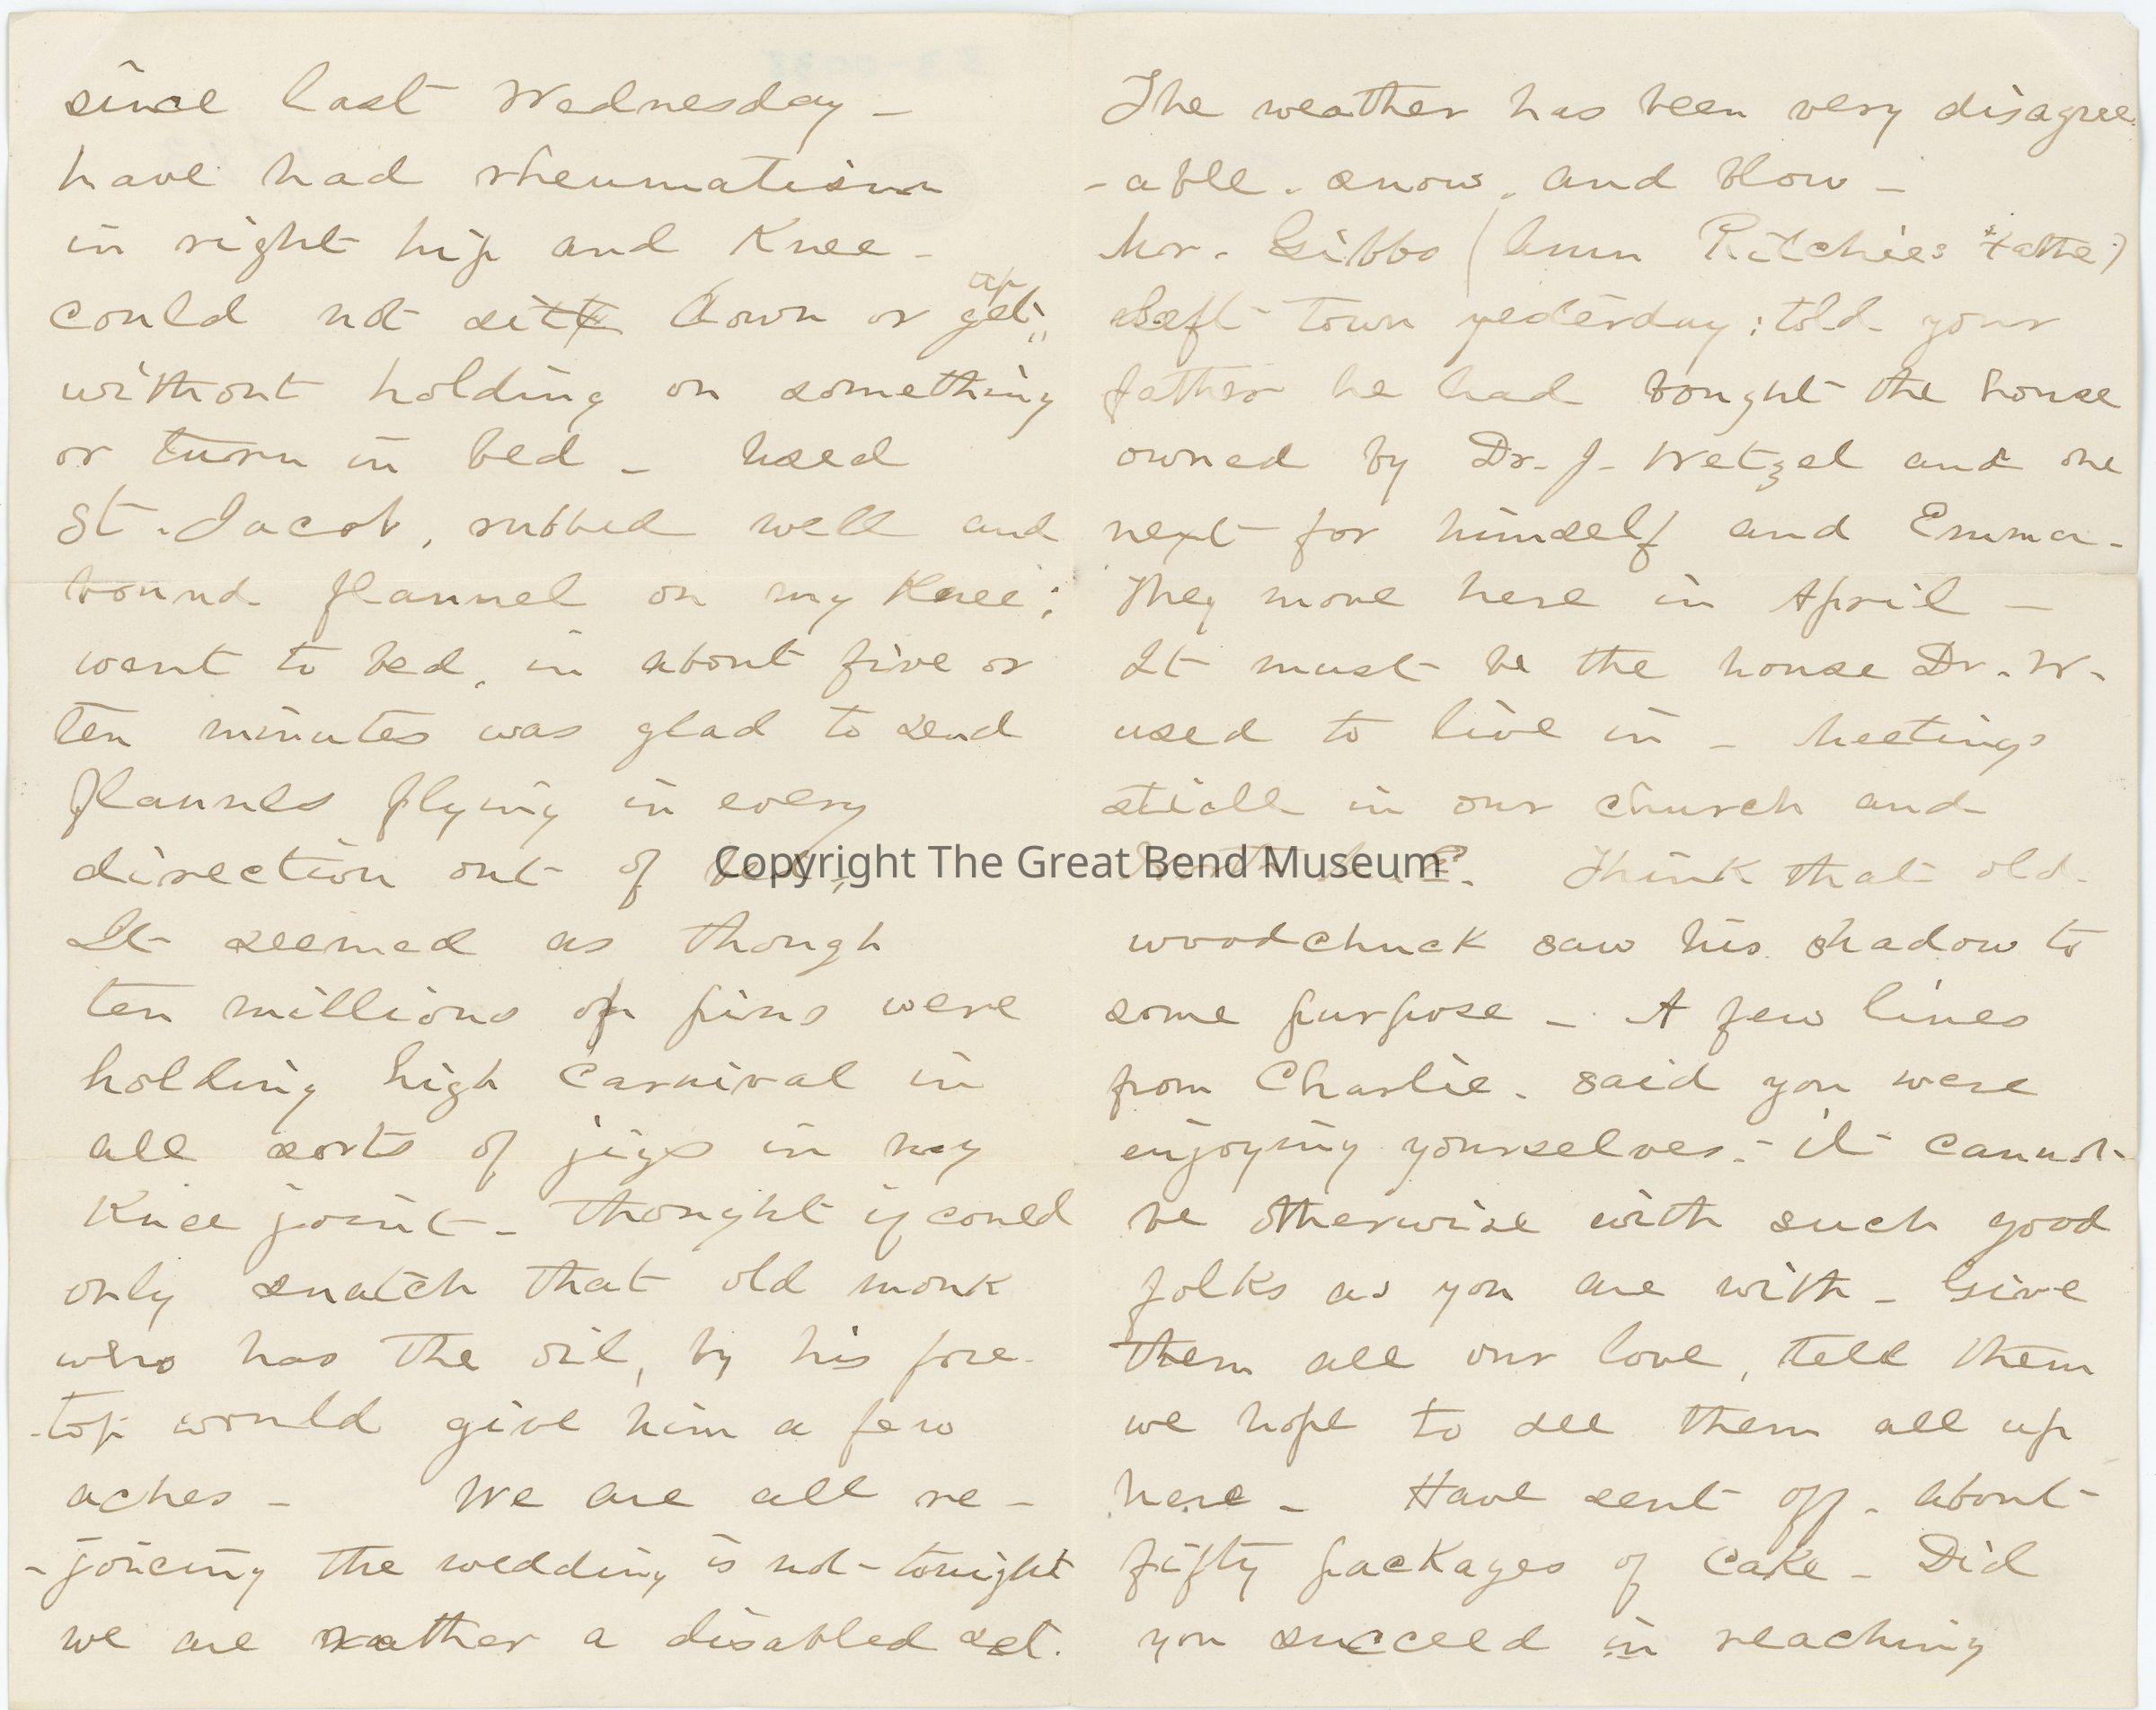 since last Wednesday -
have had rheumatism
in right hip and Knee -
could not sitt down or get up
without holding on something
or turn in bed - used
St. Jacob, rubbed well and
bound flannel on my Knee;
went to bed, in about five or
ten minutes was glad to send
flannels flying in every
direction out of bed,
It seemed as though
ten millions of pins were
holding high Carnival in
all sorts of jigs in my
Knee joint - thought if could
only snatch that old monk
who has the oil, by his fore-
-top would give him a few
aches - We are all re-
-joicing the wedding is not tonight
we are rather a disabled set.
The weather has been very disagree
-able. snow. and blow -
Mr. Gibbs ( Ritchies father)
left town yesterday; told your
father he had bought the house
owned by Dr. J. Wetzel and one
next for himself and Emma.
They move here in April -
It must be the house Dr. W.
used to live in - Meetings
still in our church and
Think that old
woodchuck saw his shadow to
some purpose - A few lines
from Charlie. said you were
enjoying yourselves. - it cannot
be otherwise with such good
folks as you are with - Give
them all our love, tell them
we hope to see them all up
here - Have sent off. about
fifty packages of Cake - Did
you succeed in reaching
Copyright The Great Bend Museum